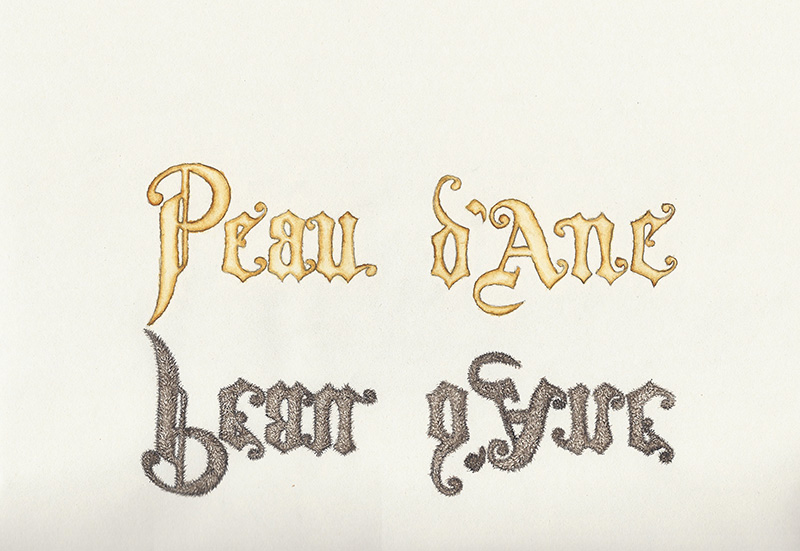 Peau d'Ane
Peau d'Ane